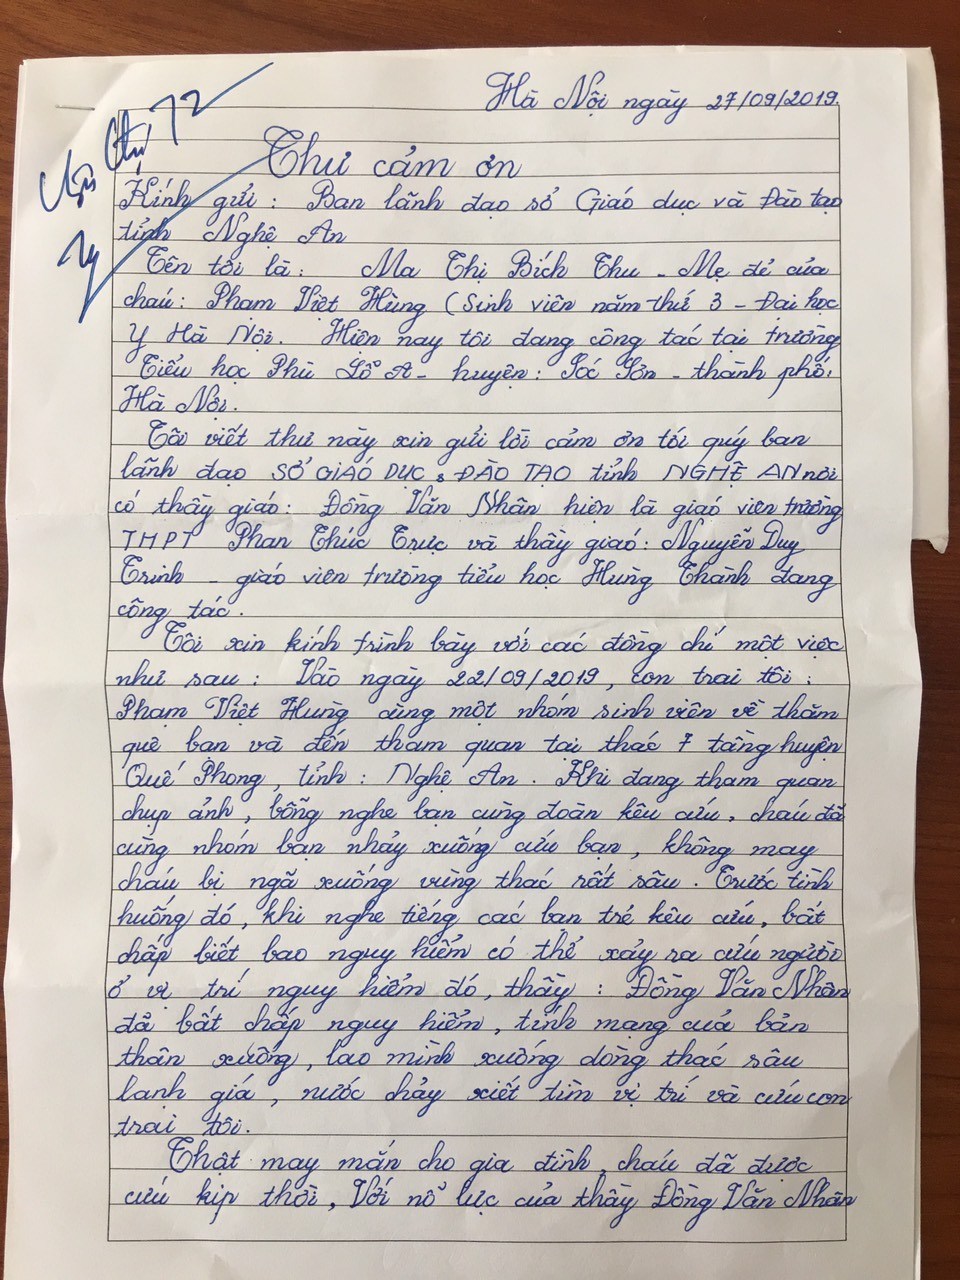 Hà Nội ngày 27/09/2019.
Thư cảm ơn
Kính gửi : Ban lãnh đạo sở Giáo dục và Đào tạo
tỉnh Nghệ An
Tên tôi là : Ma Thị Bích Thu - Mẹ đẻ của
cháu : Phạm Việt Hùng ( Sinh viên năm thứ 3 - Đại học
Y Hà Nội. Hiện nay tôi đang công tác tại trường
Tiểu học Phù Lỗ A - huyện : Sóc Sơn - thành phố :
Hà Nội.
Tôi viết thư này xin gửi lời cảm ơn tới quý ban
lãnh đạo SỞ GIÁO DỤC & ĐÀO TẠO tỉnh NGHỆ AN nơi
có thầy giáo : Đồng Văn Nhân hiện là giáo viên trường
THPT Phan Thúc Trực và thầy giáo : Nguyễn Duy
Trinh - giáo viên trường tiểu học Hùng Thành đang
công tác.
Tôi xin kính trình bày với các đồng chí một việc
như sau : Vào ngày 22/09/2019, con trai tôi :
Phạm Việt Hùng cùng một nhóm sinh viên về thăm
quê bạn và đến tham quan tại thác 7 tầng huyện
Quế Phong, tỉnh : Nghệ An. Khi đang tham quan
chụp ảnh, bỗng nghe bạn cùng đoàn kêu cứu, cháu đã
cùng nhóm bạn nhảy xuống cứu bạn, không may
cháu bị ngã xuống vùng thác rất sâu. Trước tình
huống đó, khi nghe tiếng các bạn trẻ kêu cứu, bất
chấp biết bao nguy hiểm có thể xảy ra cứu người
ở vị trí nguy hiểm đó, thầy : Đồng Văn Nhân
đã bất chấp nguy hiểm, tính mạng của bản
thân xuống, lao mình xuống dòng thác sâu
lạnh giá, nước chảy xiết tìm vị trí và cứu con
trai tôi.
Thật may mắn cho gia đình, cháu đã được
cứu kịp thời, Với nỗ lực của thầy Đồng Văn Nhân